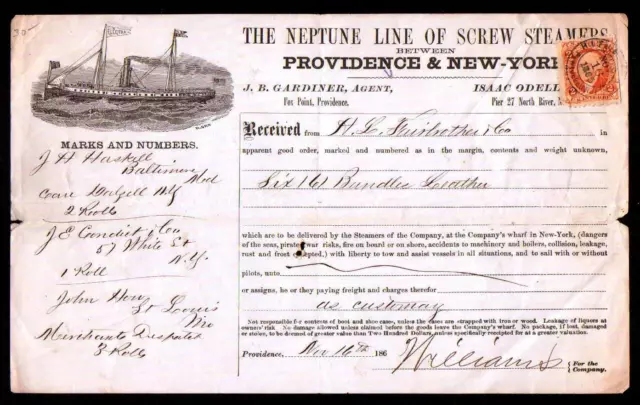 THE NEPTUNE LINE OF SCREW STEAMERS
BETWEEN
PROVIDENCE & NEW-YORK
J. B. GARDINER, AGENT,
Fox Point, Providence.
ISAAC ODELL
Pier 27 North River,
MARKS AND NUMBERS.
J H Haskell
Baltimore
Md
Care Dalzell NY
2 Rolls
J E Condict & Co
57 White St
N.Y.
1 Roll
John How
St Louis
Mo
Merchants Despatch
3 Rolls
Received from H. L. Fairbrother & Co
apparent good order, marked and numbered as in the margin, contents and weight unknown,
Six (6) Bundles Leather
which are to be delivered by the Steamers of the Company, at the Company's wharf in New-York, (dangers
of the seas, pirates, war risks, fire on board or on shore, accidents to machinery and boilers, collision, leakage,
rust and frost excepted,) with liberty to tow and assist vessels in all situations, and to sail with or without
pilots, unto
or assigns, he or they paying freight and charges therefor
as customary
Not responsible for contents of boot and shoe cases, unless the cases are strapped with iron or wood. Leakage of liquors at
owners' risk. No damage allowed unless claimed before the goods leave the Company's wharf. No package, if lost, damaged
or stolen, to be deemed of greater value than Two Hundred Dollars, unless specifically receipted for at a greater valuation.
Providence, Nov 16th 186
Williams
For the
Company.